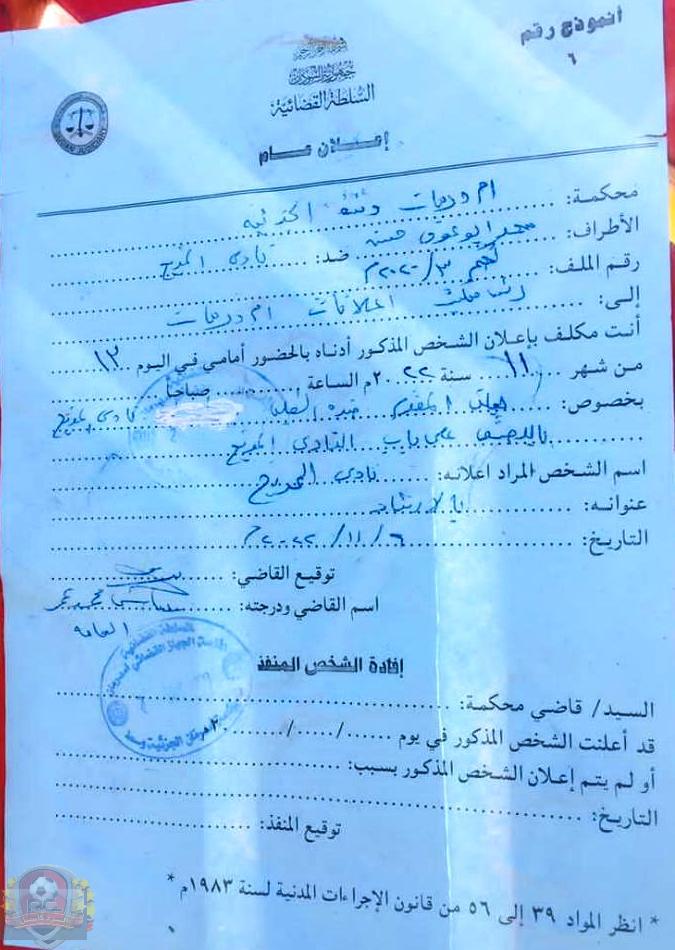 أنموذج رقم
٦
بسم الله الرحمن الرحيم
جمهورية السودان
السلطة القضائية
SUDAN JUDICIARY
إعلان عام
محكمة: ام درمان وسط الجزئية
الأطراف: محمد ابوعوف حسن ضد: نادى المريخ
رقم الملف: /٢٠٢٠م
إلى: اعلانات ام درمان
أنت مكلف بإعلان الشخص المذكور أدناه بالحضور أمامي في اليوم ١٣
من شهر ١١ سنة ٢٠٢٢م الساعة صباحاً
بخصوص: المقدم ضده نادى المريخ
باللصق على باب النادى المريخ
اسم الشخص المراد اعلانه: نادى المريخ
عنوانه: بالارشاد
التاريخ: ٦/١١/٢٠٢٢م
توقيع القاضي:
اسم القاضي ودرجته: محمد
العامة
إفادة الشخص المنفذ
السيد/ قاضي محكمة:
قد أعلنت الشخص المذكور في يوم ....../...../٢٠
أو لم يتم إعلان الشخص المذكور بسبب:
التاريخ:
توقيع المنفذ:
* انظر المواد ٣٩ إلى ٥٦ من قانون الإجراءات المدنية لسنة ١٩٨٣م *